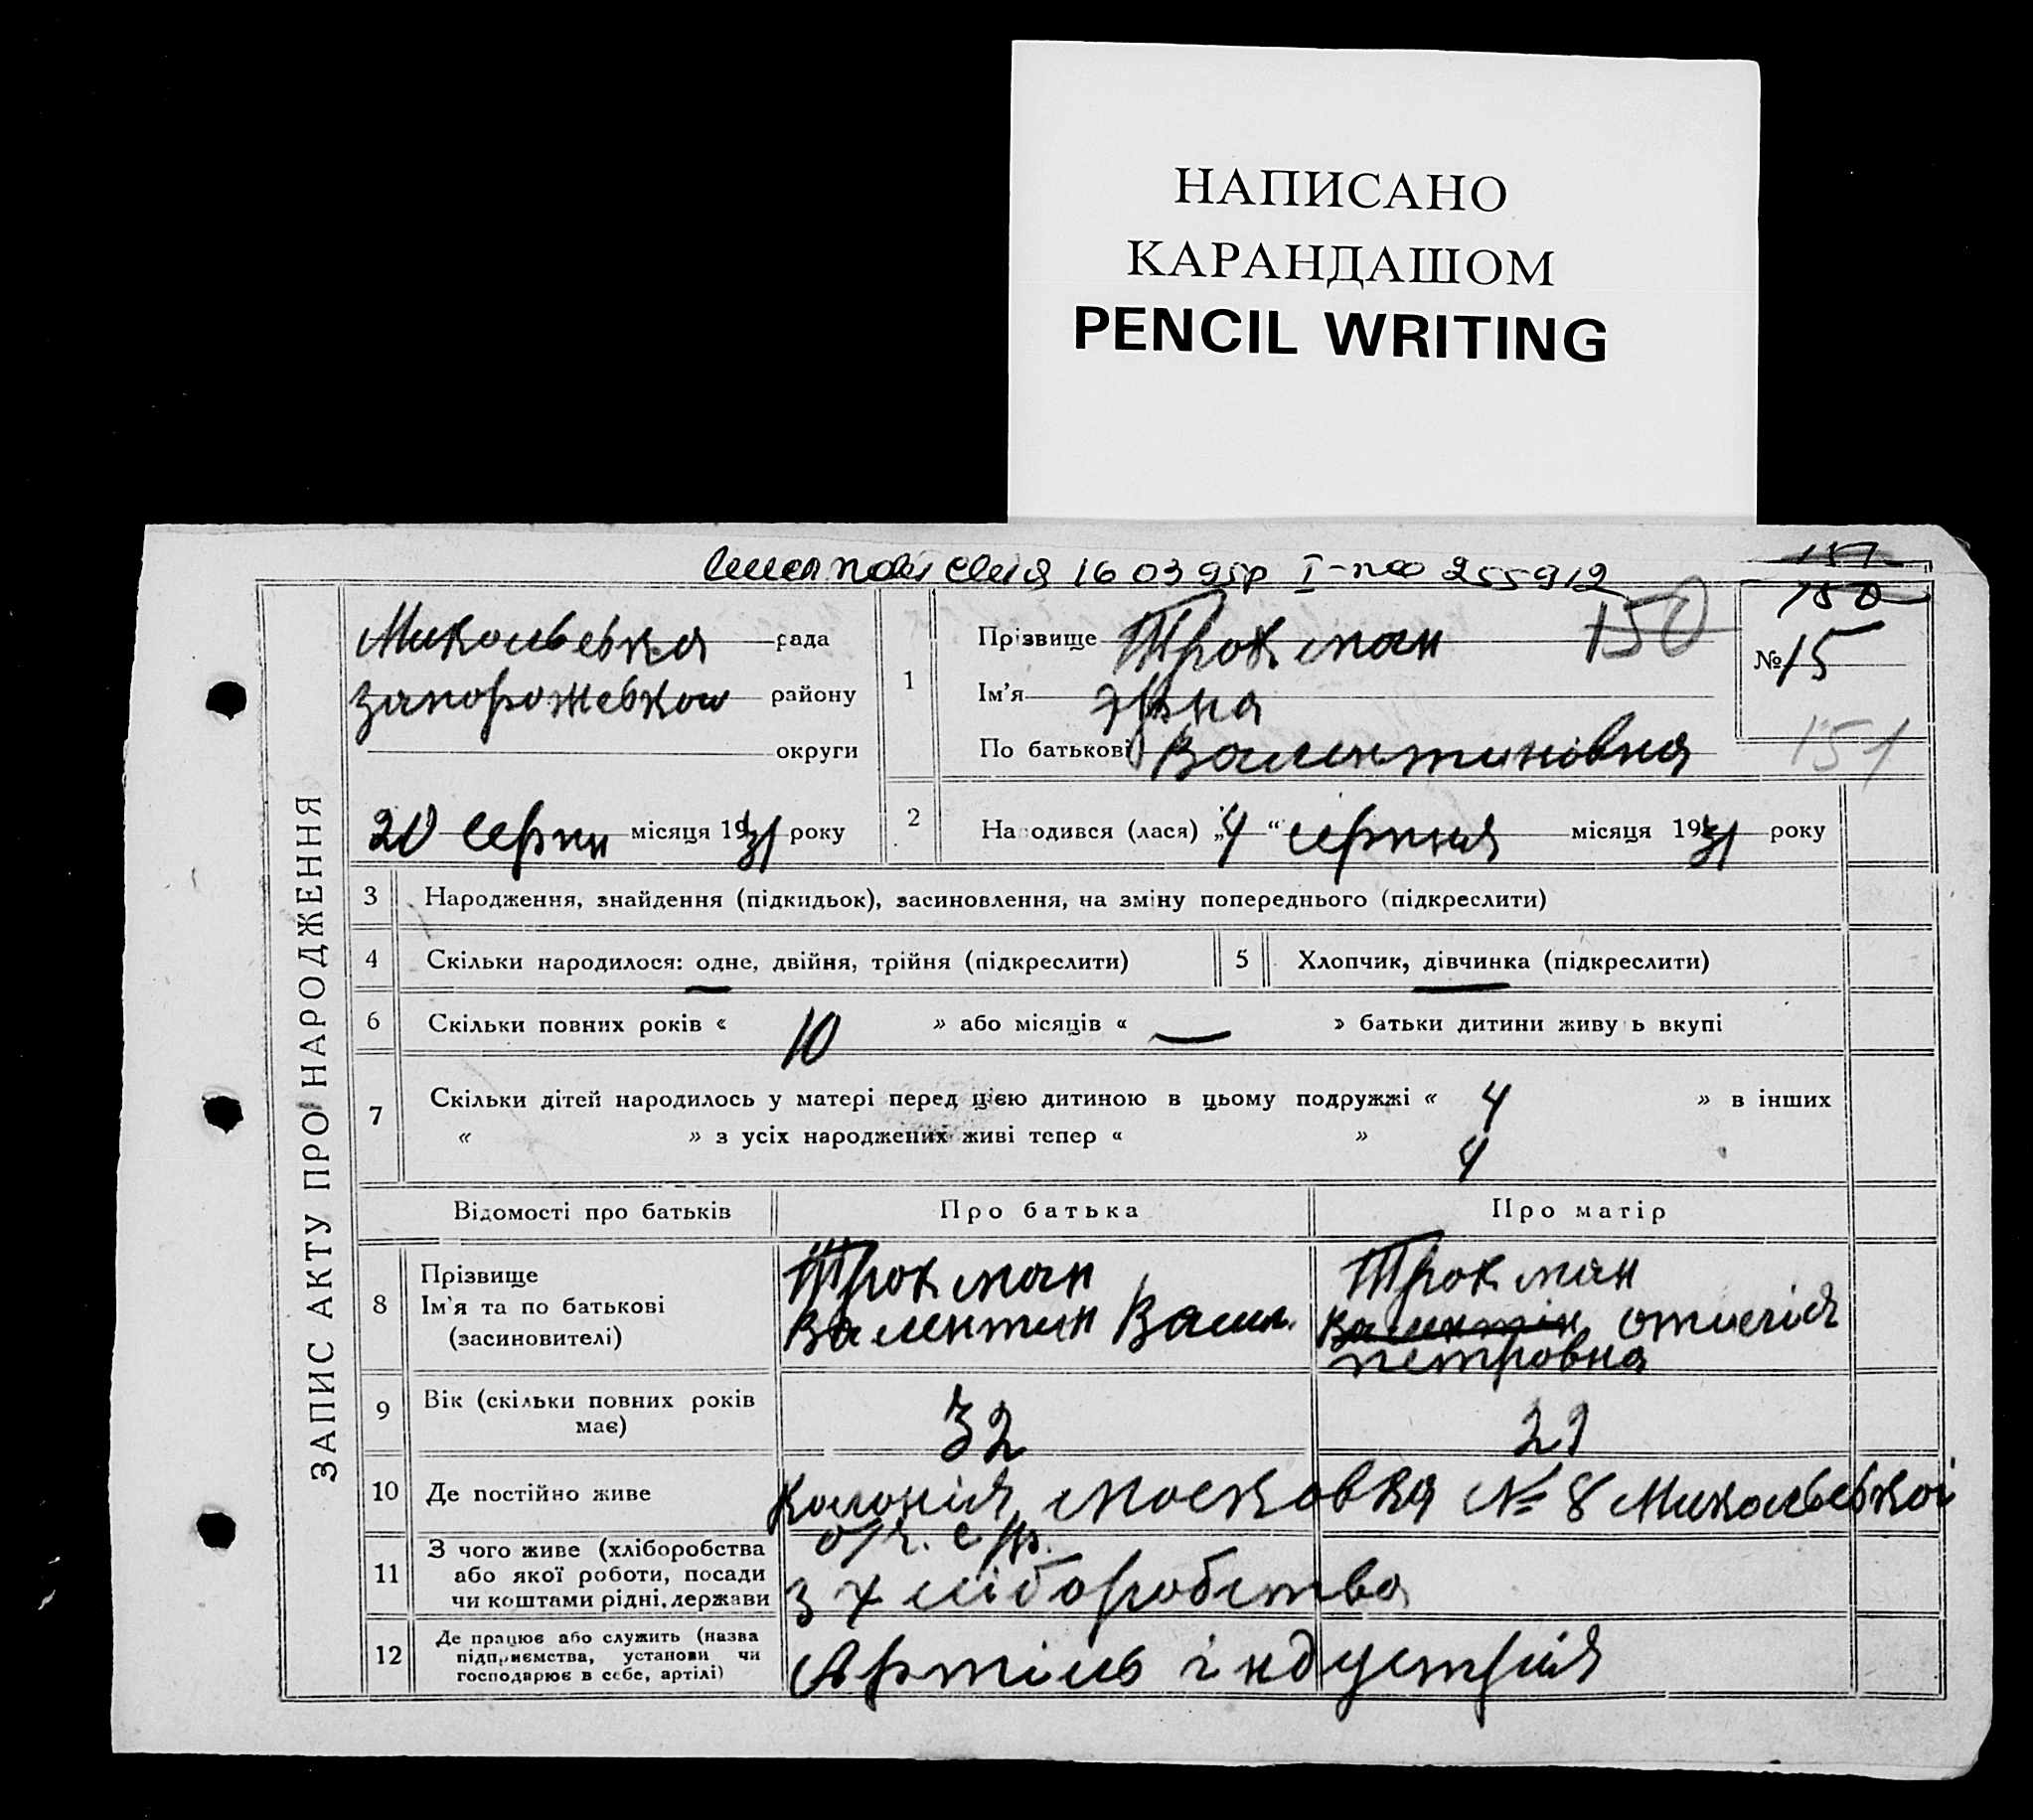 НАПИСАНО
КАРАНДАШОМ
PENCIL WRITING
16 03 95р I-
157
150
ЗАПИС АКТУ ПРО НАРОДЖЕННЯ
рада
району
округи
20 серпн місяця 1931 року
1
Прізвище 150
Ім'я
По батькові Валентиновна
№ 15
151
2 Народився (лася) „4“ серпня місяця 1931 року
3 Народження, знайдення (підкидьок), засиновлення, на зміну попереднього (підкреслити)
4 Скільки народилося: одне, двійня, трійня (підкреслити) 5 Хлопчик, дівчинка (підкреслити)
6 Скільки повних років « 10 » або місяців « — » батьки дитини живуть вкупі
7 Скільки дітей народилось у матері перед цією дитиною в цьому подружжі « 4 » в інших
« » з усіх народжених живі тепер « 4 »
Відомості про батьків Про батька Про матір
8 Прізвище
Ім'я та по батькові Валентин
(засиновителі) петровна
9 Вік (скільки повних років має) 32 29
10 Де постійно живе колонія Московка № 8
11 З чого живе (хліборобства
або якої роботи, посади
чи коштами рідні, держави з хліборобства
12 Де працює або служить (назва
підприємства, установи чи
господарює в себе, артілі) Артіль індустрія